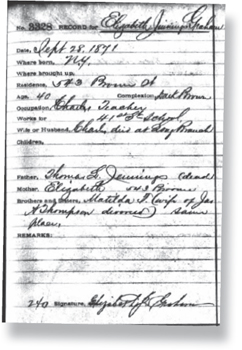 No. 3328 RECORD for Elizabeth Jennings Graham
Date, Sept 28 1871
Where born, N.Y.
Where brought up,
Residence, 543 Broome St
Age, 40 Complexion, Dark Brown
Occupation, Teacher
Works for 41st St School
Wife or Husband, Charles died at Long Branch
Children,
Father, Thomas L. Jennings (dead
Mother, Elizabeth 543 Broome
Brothers and Sisters, Matilda (wife of Jas
A Thompson divorced) same
place,
REMARKS:
240 Signature, Elizabeth J Graham